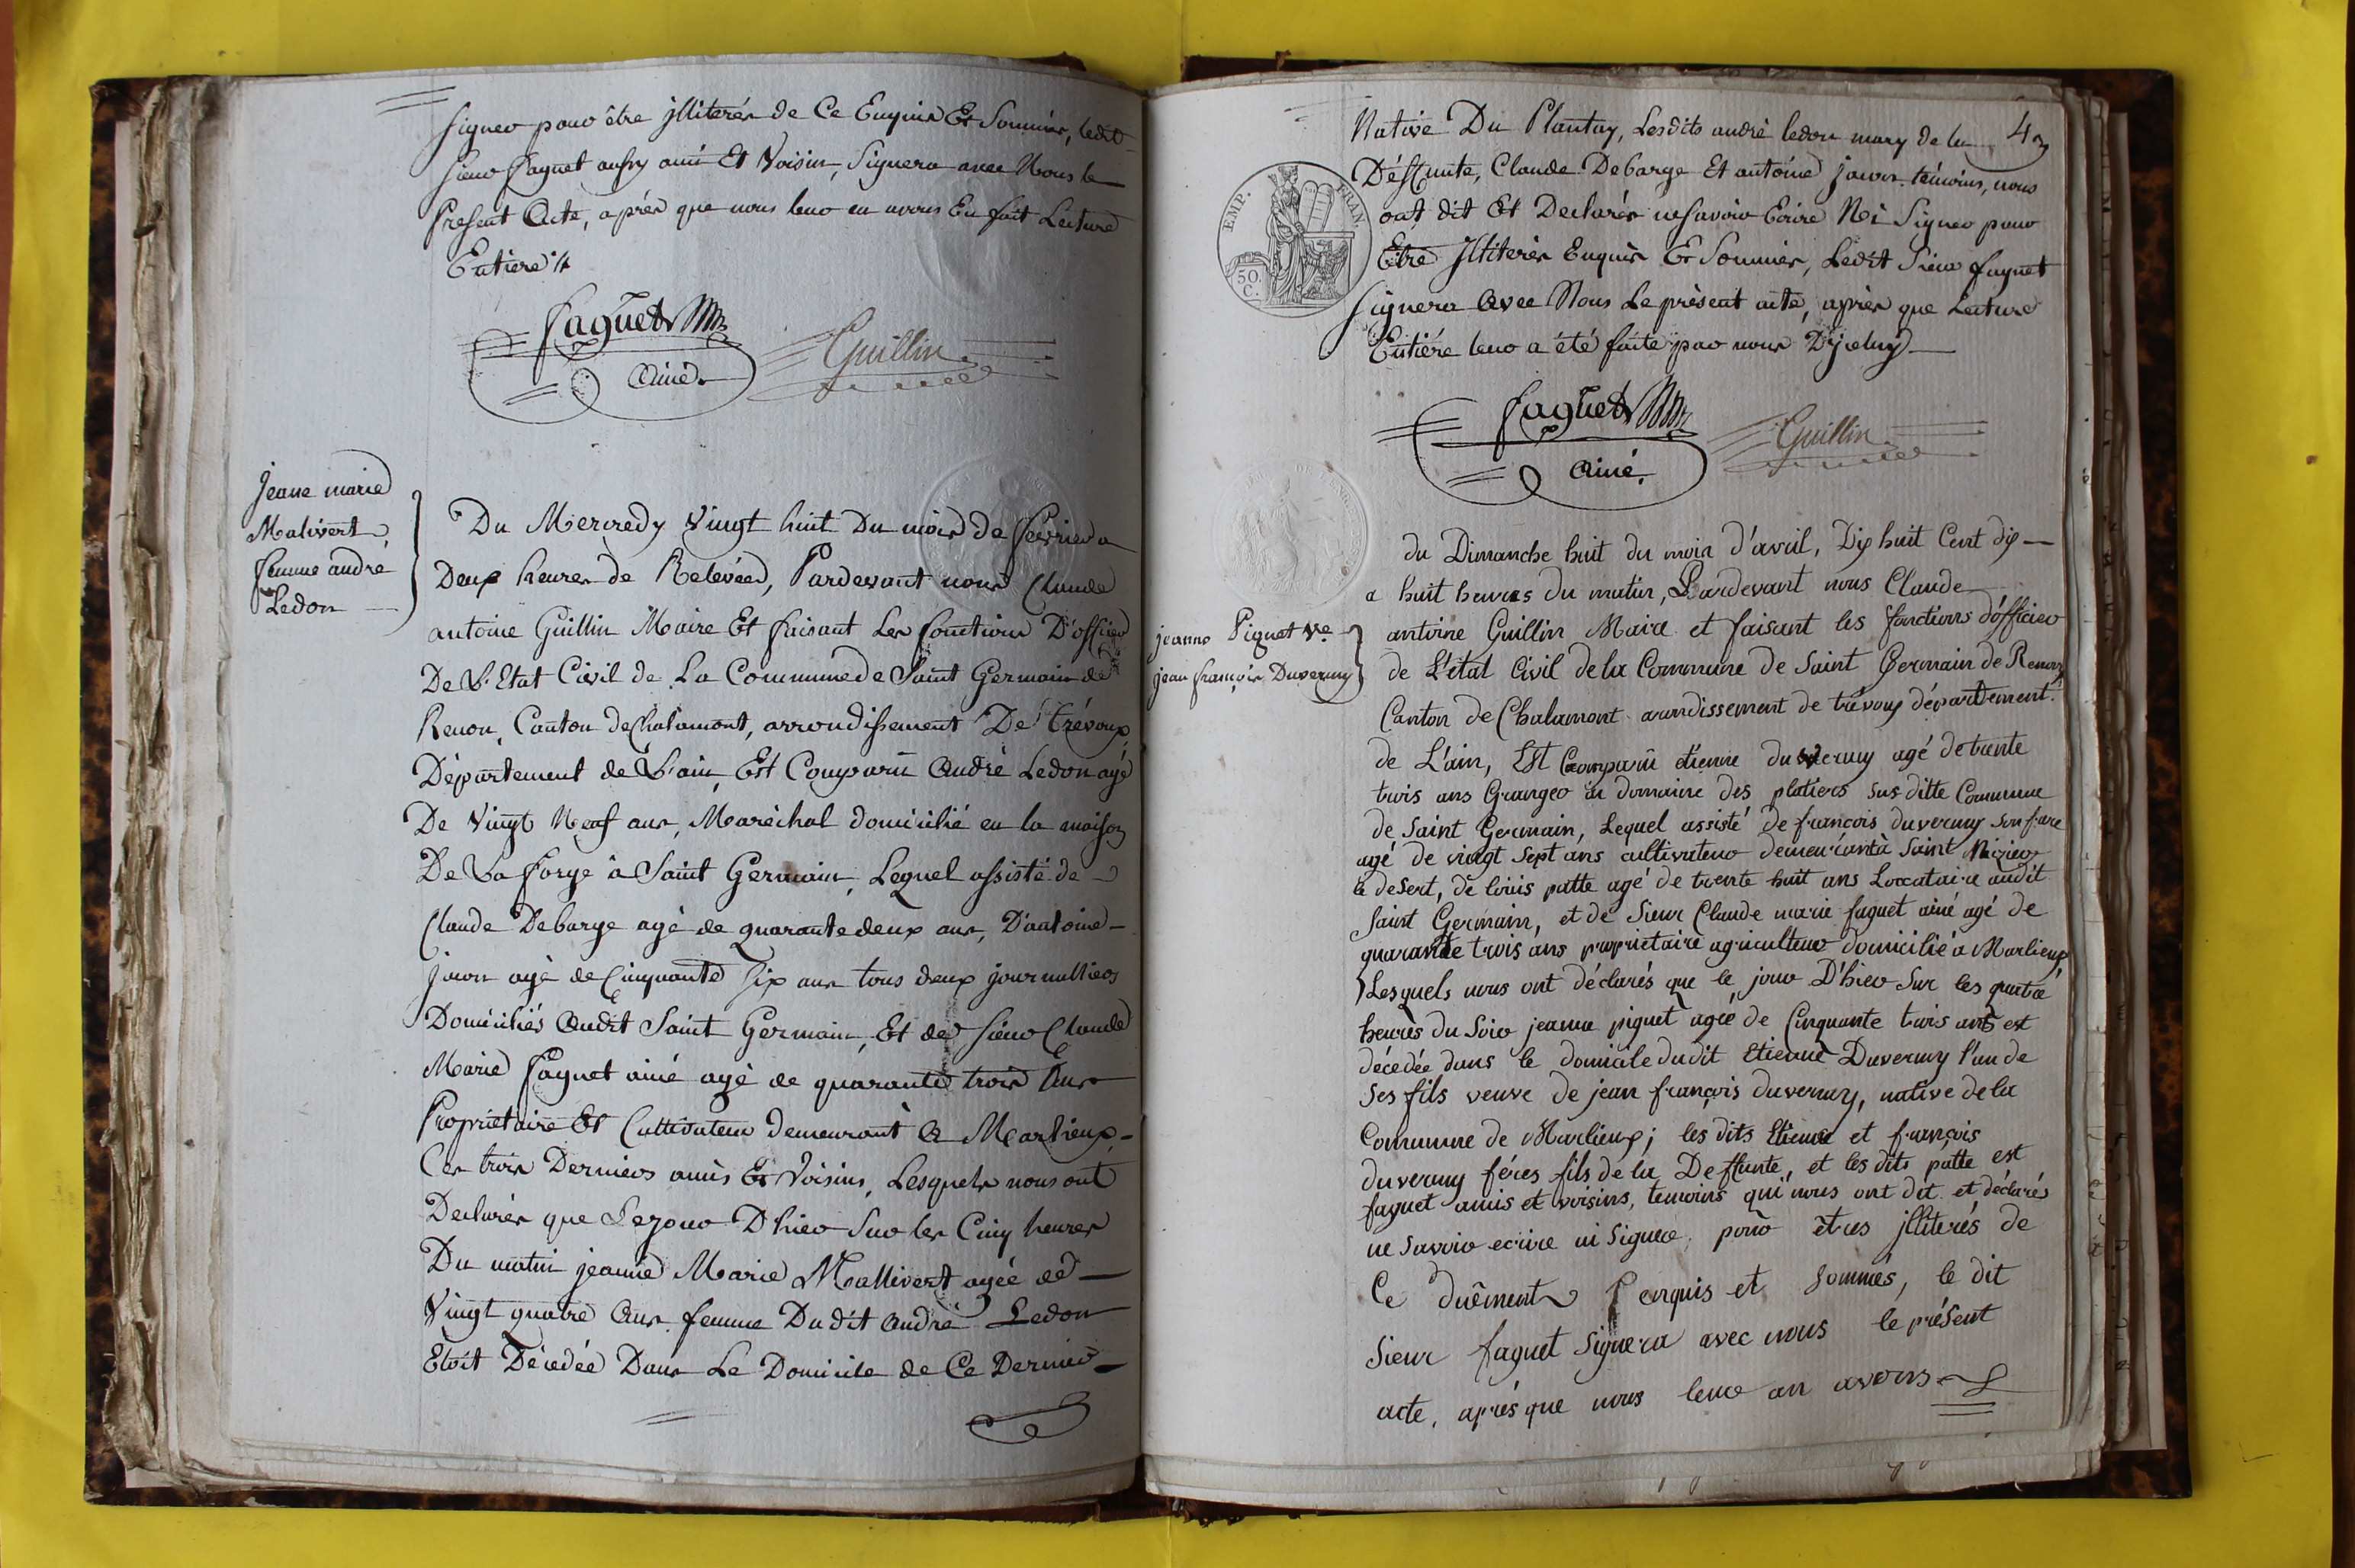 signer pour être jlliterés de Ce Enquis Et Sommés, ledit
sieur faguet aussy ami Et Voisin, Signera avec Nous le
Présent Acte, après que nous leur en avons Eu fait Lecture
Entiere
faguet
Ainé
Guillin
jeane marie
Malivert
femme andré
Ledon
Du Mercredy Vingt huit Du mois de février a
Deux heures de Relevées, Pardevant nous Claude
antoine Guillin Maire Et faisant Les fonctions D'officier
De L'Etat Civil de La Commune de Saint Germain de
Renon, Canton de Chalamont, arrondissement De trévoux
Département de L'ain, Est Comparû André Ledon agé
De Vingt Neuf ans, Maréchal domicilié en la maison
De La forge à Saint Germain, Lequel assisté de
Claude Debarge agé de quarante deux ans, D'antoine
jauon agé de Cinquante six ans tous deux journalliers
Domiciliés Audit Saint Germain, Et de sieur Claude
Marie faguet ainé agé de quarante trois Ans
Propriétaire Et Cultivateur demeurant A Marlieux
Ces trois Derniers amis Et Voisins, Lesquels nous ont
Declarés que Le jour D'hier Sur les Cinq heures
Du matin jeanne Marie Mallivert agée de
Vingt quatre Ans femme Dudit André Ledon
Etoit Décedée Dans Le Domicile de Ce Dernier
Native Du Plantay, Lesdits andré ledon mary de la
Déffunte, Claude Debarge Et antoine jauon témoins, nous
ont dit Et Declarés ne savoir Ecrire Ni Signer pour
Etre Jlliterés Enquis Et Sommés, Ledit Sieur faguet
Signera Avec Nous Le présent acte, après que Lecture
Entiére leur a été faite par nous
EMP. FRAN.
50
C.
faguet
Ainé
Guillin
jeanne Piguet Ve
jean françois Duvernay
du Dimanche huit du mois d'avril, Dix huit Cent dix
a huit heures du matin, Pardevant nous Claude
antoine Guillin Maire et faisant les fonctions d'officier
de L'état Civil de la Commune de Saint Germain de Renon
Canton de Chalamont arrondissement de trévoux département
de L'ain, Est Comparû étienne duvernay agé de trente
trois ans Granger au domaine des platiers sus ditte Commune
de Saint Germain, Lequel assisté de francois duvernay son frere
agé de vingt sept ans cultivateur demeurant à Saint Nizier
le desert, de louis patte agé de trente huit ans Loccataire audit
Saint Germain, et de Sieur Claude marie faguet ainé agé de
quarante trois ans proprietaire agriculteur domicilié a Marlieux,
Lesquels nous ont déclarés que le jour D'hier Sur les quatre
heures du Soir jeanne piguet agée de Cinquante trois ans est
décédée dans le domicile dudit Etienne Duvernay l'un de
Ses fils veuve de jean françois duvernay, native de la
Commune de Marlieux; les dits Etienne et françois
duvernay féres fils de la Deffunte, et les dits patte est
faguet amis et voisins, temoins qui nous ont dit et déclarés
ne Savoir ecrire ni Signer, pour êtres jlliterés de
Ce duêment enquis et Sommés, le dit
Sieur faguet Signera avec nous le présent
acte, aprés que nous leur an avons